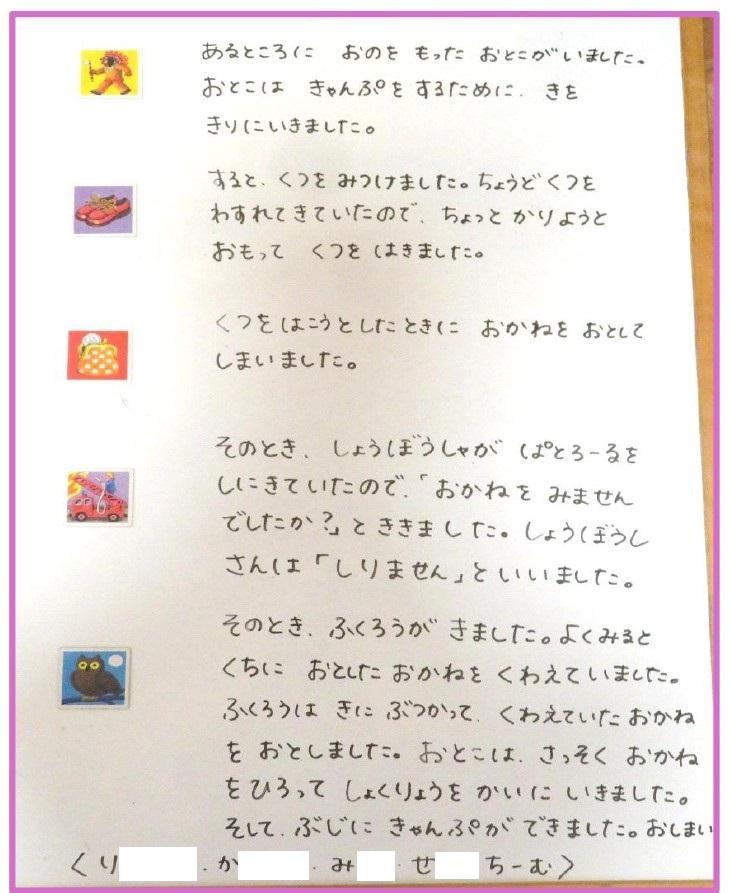 あるところに　おのを　もった　おとこがいました。
おとこは　きゃんぷを　するために、きを
きりにいきました。
すると、くつを　みつけました。ちょうど　くつを
わすれてきていたので、ちょっと　かりようと
おもって　くつを　はきました。
くつをはこうとしたときに　おかねを　おとして
しまいました。
そのとき、しょうぼうしゃが　ぱとろーるを
しにきていたので、「おかねを　みません
でしたか？」とききました。しょうぼうし
さんは「しりません」といいました。
そのとき、ふくろうが　きました。よくみると
くちに　おとした　おかねを　くわえていました。
ふくろうは　きに　ぶつかって、くわえていた　おかね
を　おとしました。おとこは、さっそく　おかね
をひろって　しょくりょうを　かいに　いきました。
そして、ぶじに　きゃんぷが　できました。おしまい
〈り　．か　．み　．せ　ちーむ〉